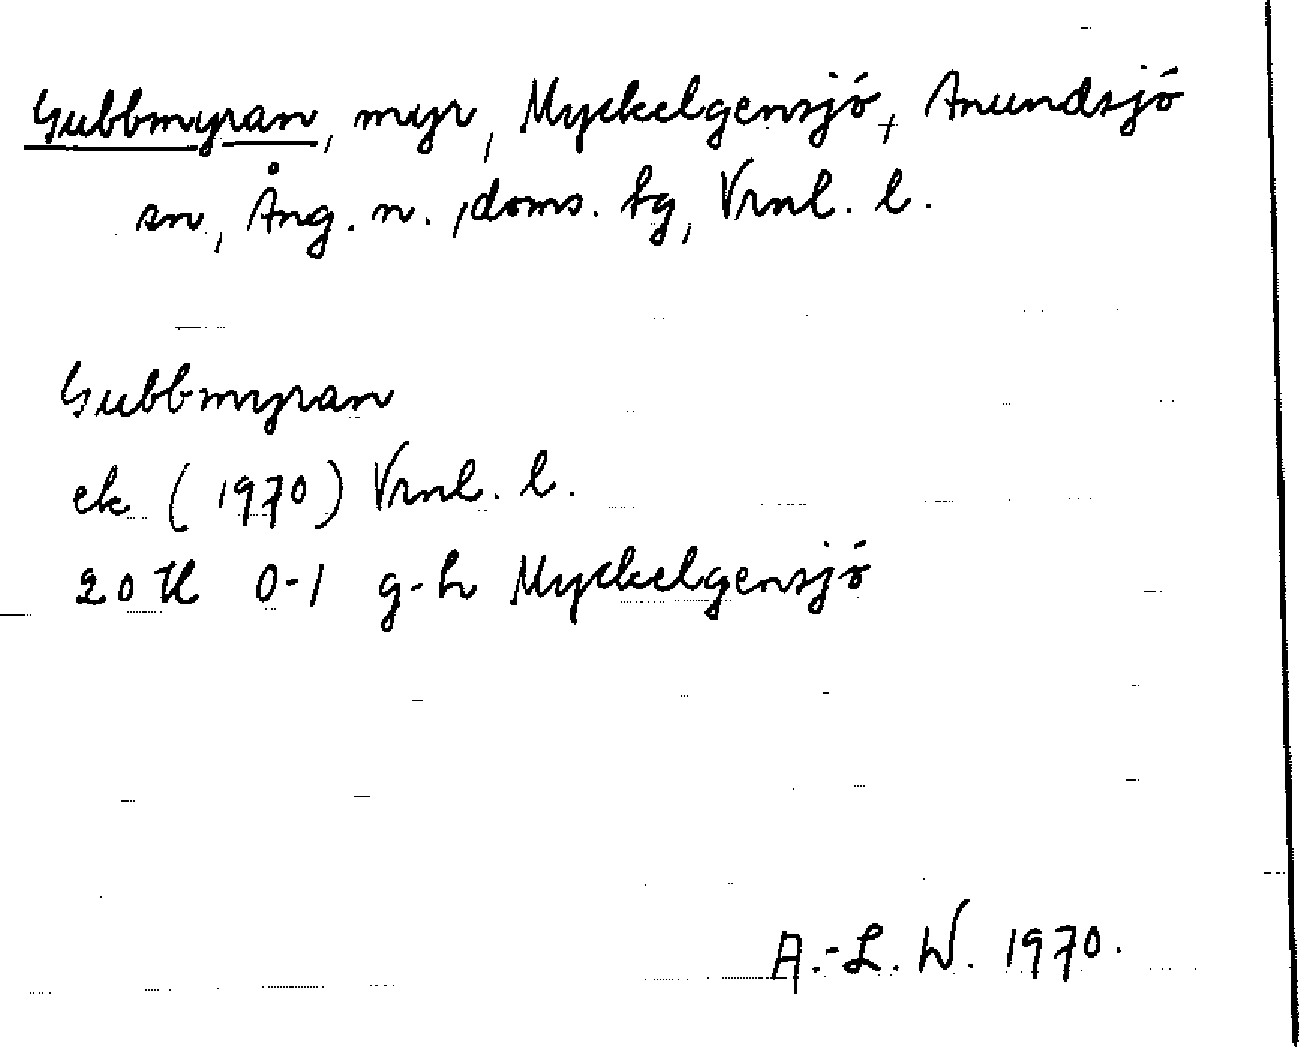 Gubbmyran, myr, Myckelgensjö, Anundsjö
sn, Ång. n., doms. tg, Vrnl. l.
Gubbmyran
ek (1970) Vrnl. l.
20 H 0-1 g-h Myckelgensjö
A.-L. W. 1970.